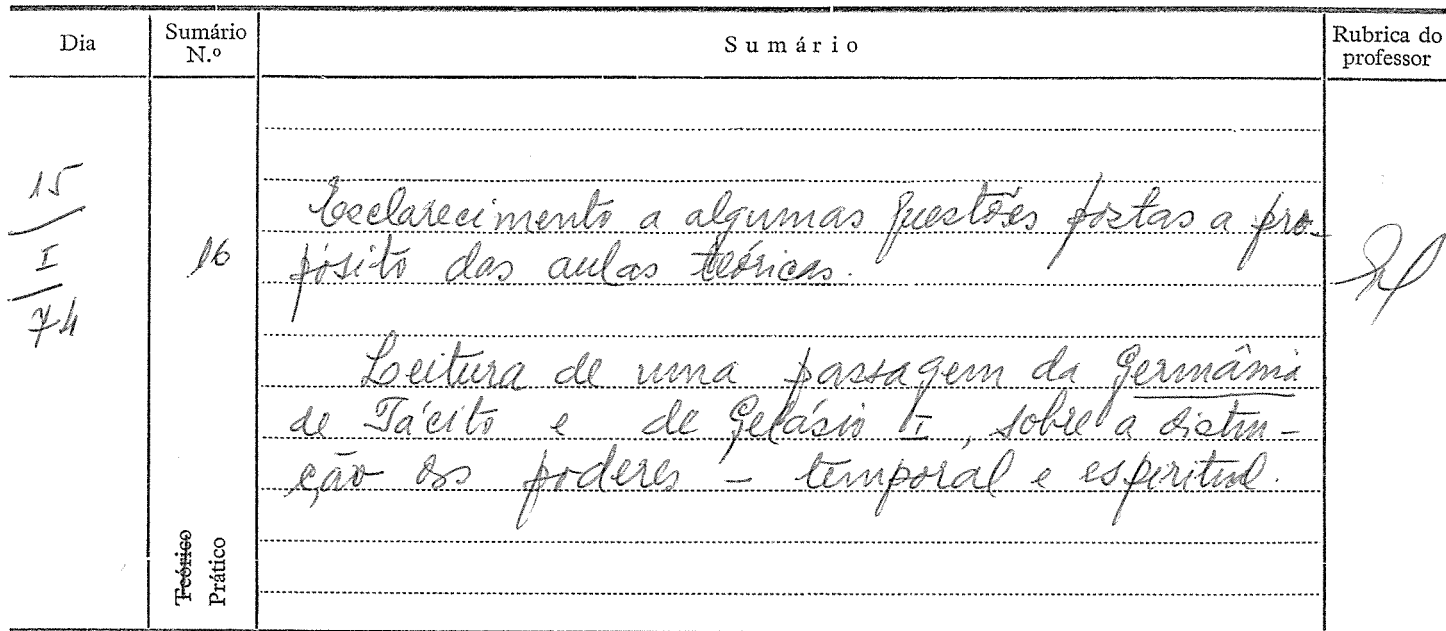 Dia
Sumário
N.º
Sumário
Rubrica do
professor
15
I
74
16
Esclarecimento a algumas questões postas a pro-
pósito das aulas teóricas.
Leitura de uma passagem da Germânia
de Tácito e de Gelásio I, sobre a distin-
ção dos poderes - temporal e espiritual.
Teórico
Prático